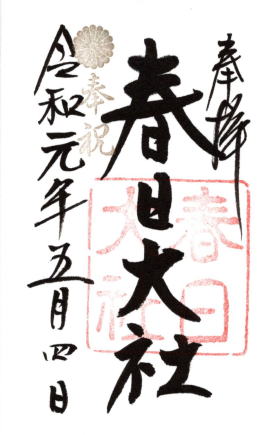 奉拝
春日大社
春日大社
奉祝
令和元年五月四日